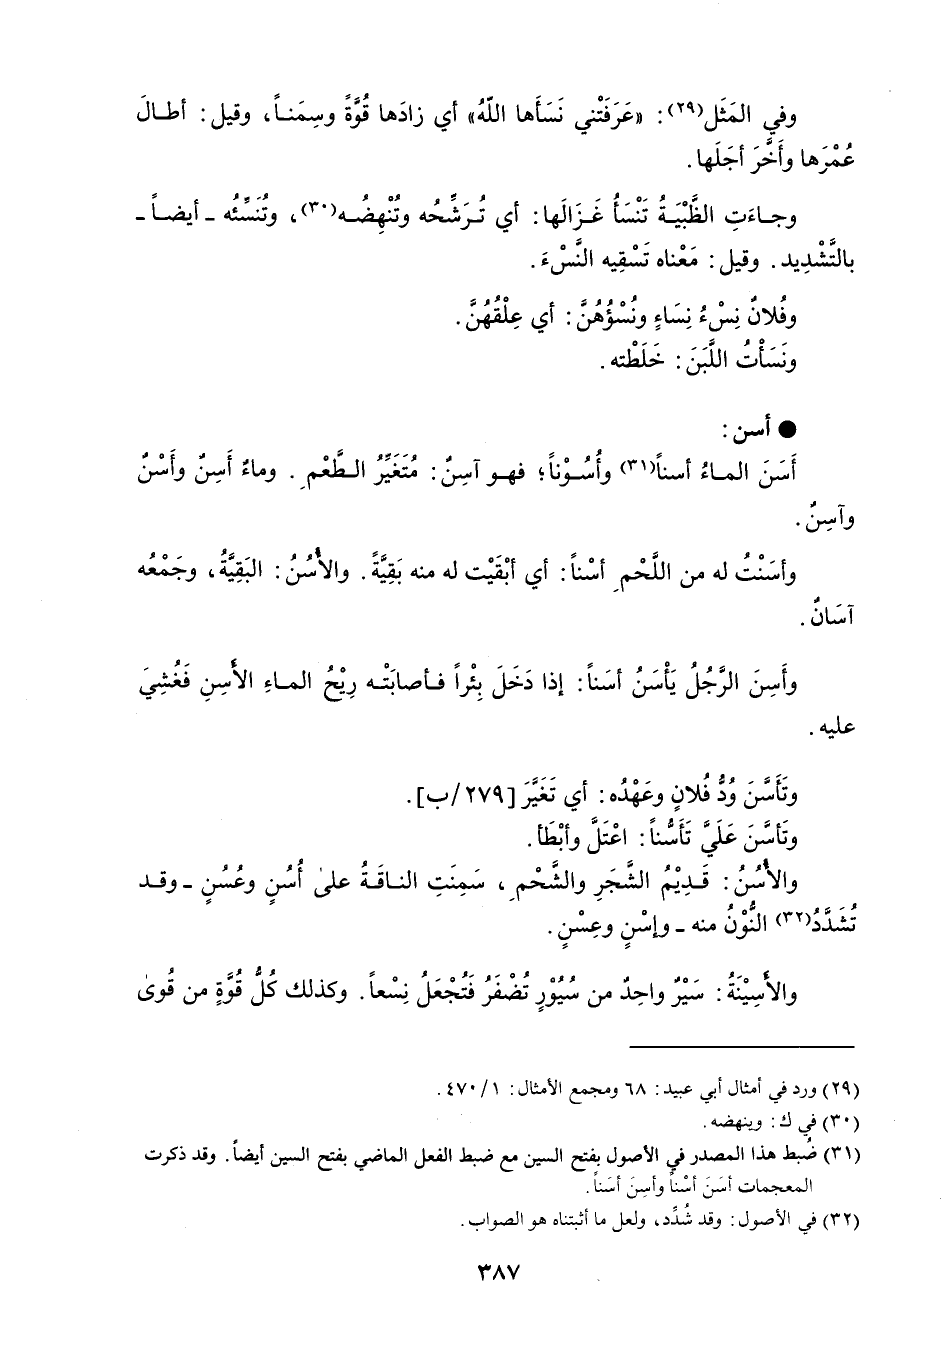 وفي المَثَل(٢٩): «عَرَفَتْني نَسَأَها اللّهُ» أي زادَها قُوَّةً وسِمَناً، وقيل: أطالَ
عُمْرَها وأَخَّرَ أجَلَها.
وجاءَتِ الظَّبْيَةُ تَنْسَأُ غَزَالَها: أي تُرَشِّحُه وتُنْهِضُه(٣٠)، وتُنَسِّئُه ـ أيضاً ـ
بالتَّشْدِيد. وقيل: مَعْناه تَسْقِيه النَّسْءَ.
وفُلانٌ نِسْءُ نِسَاءٍ ونُسْؤُهُنَّ: أي عِلْقُهُنَّ.
ونَسَأْتُ اللَّبَنَ: خَلَطْته.
● أسن:
أَسَنَ الماءُ أسناً(٣١) وأُسُوْناً؛ فهو آسِنٌ: مُتَغَيِّرُ الطَّعْمِ. وماءٌ أَسِنٌ وأَسْنٌ
وآسِنٌ.
وأسَنْتُ له من اللَّحْمِ أسْناً: أي أبْقَيْت له منه بَقِيَّةً. والأُسُنُ: البَقِيَّةُ، وجَمْعُه
آسَانٌ.
وأَسِنَ الرَّجُلُ يَأْسَنُ أسَناً: إذا دَخَلَ بِئْراً فأصابَتْه رِيْحُ الماءِ الأسِنِ فَغُشِيَ
عليه.
وتَأَسَّنَ وُدُّ فُلانٍ وعَهْدُه: أي تَغَيَّرَ [٢٧٩/ب].
وتَأسَّنَ عَلَيَّ تَأَسُّناً: اعْتَلَّ وأبْطَأ.
والأُسُنُ: قَدِيْمُ الشَّجَرِ والشَّحْمِ، سَمِنَتِ الناقَةُ علىٰ أُسُنٍ وعُسُنٍ ـ وقد
تُشَدَّدُ(٣٢) النُّوْنُ منه ـ وإسْنٍ وعِسْنٍ.
والأَسِيْنَةُ: سَيْرٌ واحِدٌ من سُيُوْرٍ تُضْفَرُ فَتُجْعَلُ نِسْعاً. وكذلك كُلُّ قُوَّةٍ من قُوىٰ
(٢٩) ورد في أمثال أبي عبيد: ٦٨ ومجمع الأمثال: ٤٧٠/١.
(٣٠) في ك: وينهضه.
(٣١) ضُبط هذا المصدر في الأصول بفتح السين مع ضبط الفعل الماضي بفتح السين أيضاً. وقد ذكرت
المعجمات أسَنَ أسْناً وأسِنَ أسَناً.
(٣٢) في الأصول: وقد شُدِّد، ولعل ما أثبتناه هو الصواب.
٣٨٧